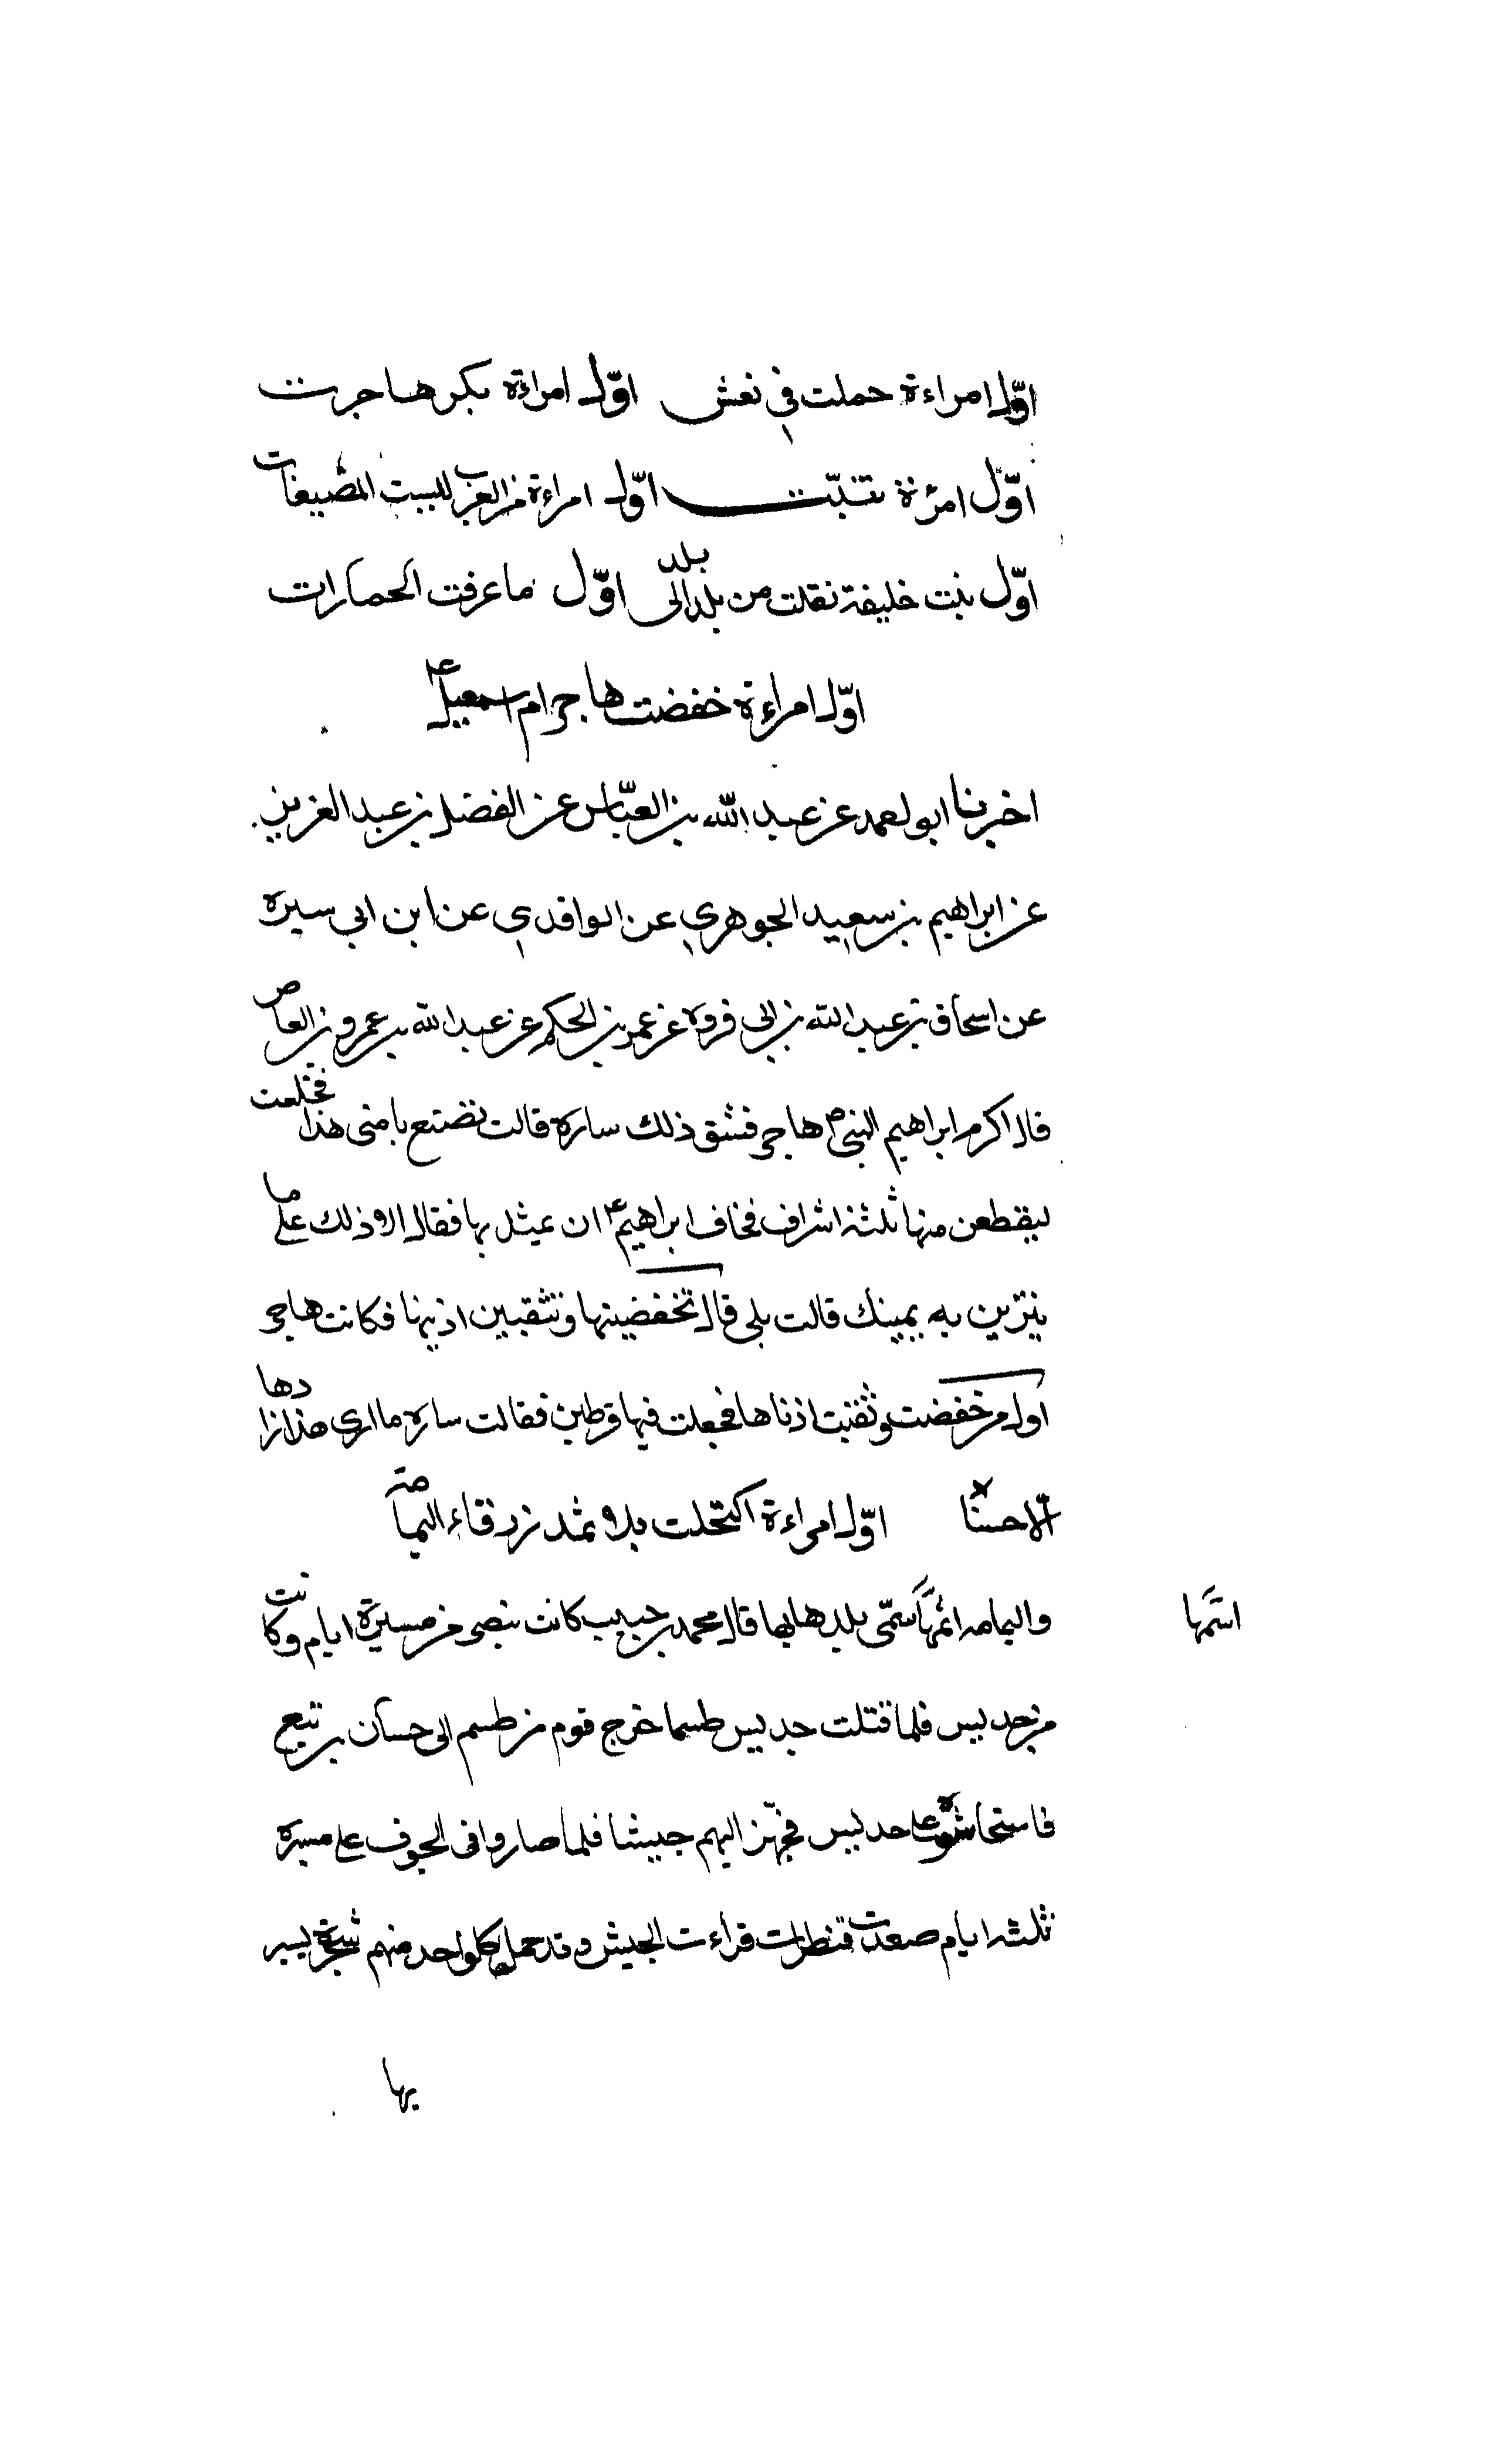 اوّل امراءة حملت في نعش اوّل امراءة بكر هاجرت
اوّل امرءة تنبّت اوّل امراءة من العرب لبست المصبغات
اوّل بنت خليفة نقلت من بلد الى بلد اوّل ما عرفت الحمارات
اوّل امراءة خفضت هاجر ام اسمعيل ع
اخبرنا ابو احمد عن عبد الله بن العبّاس عن الفضل بن عبد العزيز
عن ابراهيم بن سعيد الجوهري عن الواقدي عن ابن ابي سبره
عن اسحاق بن عبد الله بن ابي فروه عن عمر بن الحكم عن عبد الله بن عمرو بن العاص
قال اكرم ابراهيم النبي ص هاجر فشق ذلك سارة قالت تضتع بامتى هذا فحلفت
ليقطعن منها ثلثة اشراف فخاف ابراهيم ع ان يمثل بها فقال الا ادلك على ما
تبرين به يمينك قالت بلى قال تخفضينها وتثقبين اذنيها فكانت هاجر
اول من خفضت وثقبت اذناها فجعلت فيها قرطين فقالت ساره ما ارى هذا زادها
الّا حسنا اوّل امراءة اكتحلت بالاثمد زرقاء اليمامة
واليمامه اسمها سمّى بلدها بها قال محمد بن حبيب كانت تبصر من مسيرة ايام وكانت
اسمها
من جديس فلما قتلت جديس طسما خرج قوم من طسم الى حسان بن تبع
فاستجاشوه على جديس فجهّز اليهم جيشا فلما صاروا فى الجوف على مسيرة
ثلثه ايام صعدت فنظرات فراءت الجيش وقد حمل كل واحد منهم شجرة يسير
بها